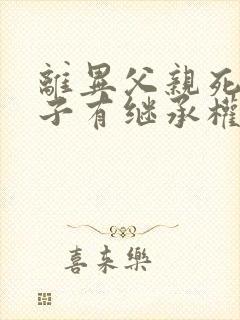 離異父親死
子有继承權
喜来樂